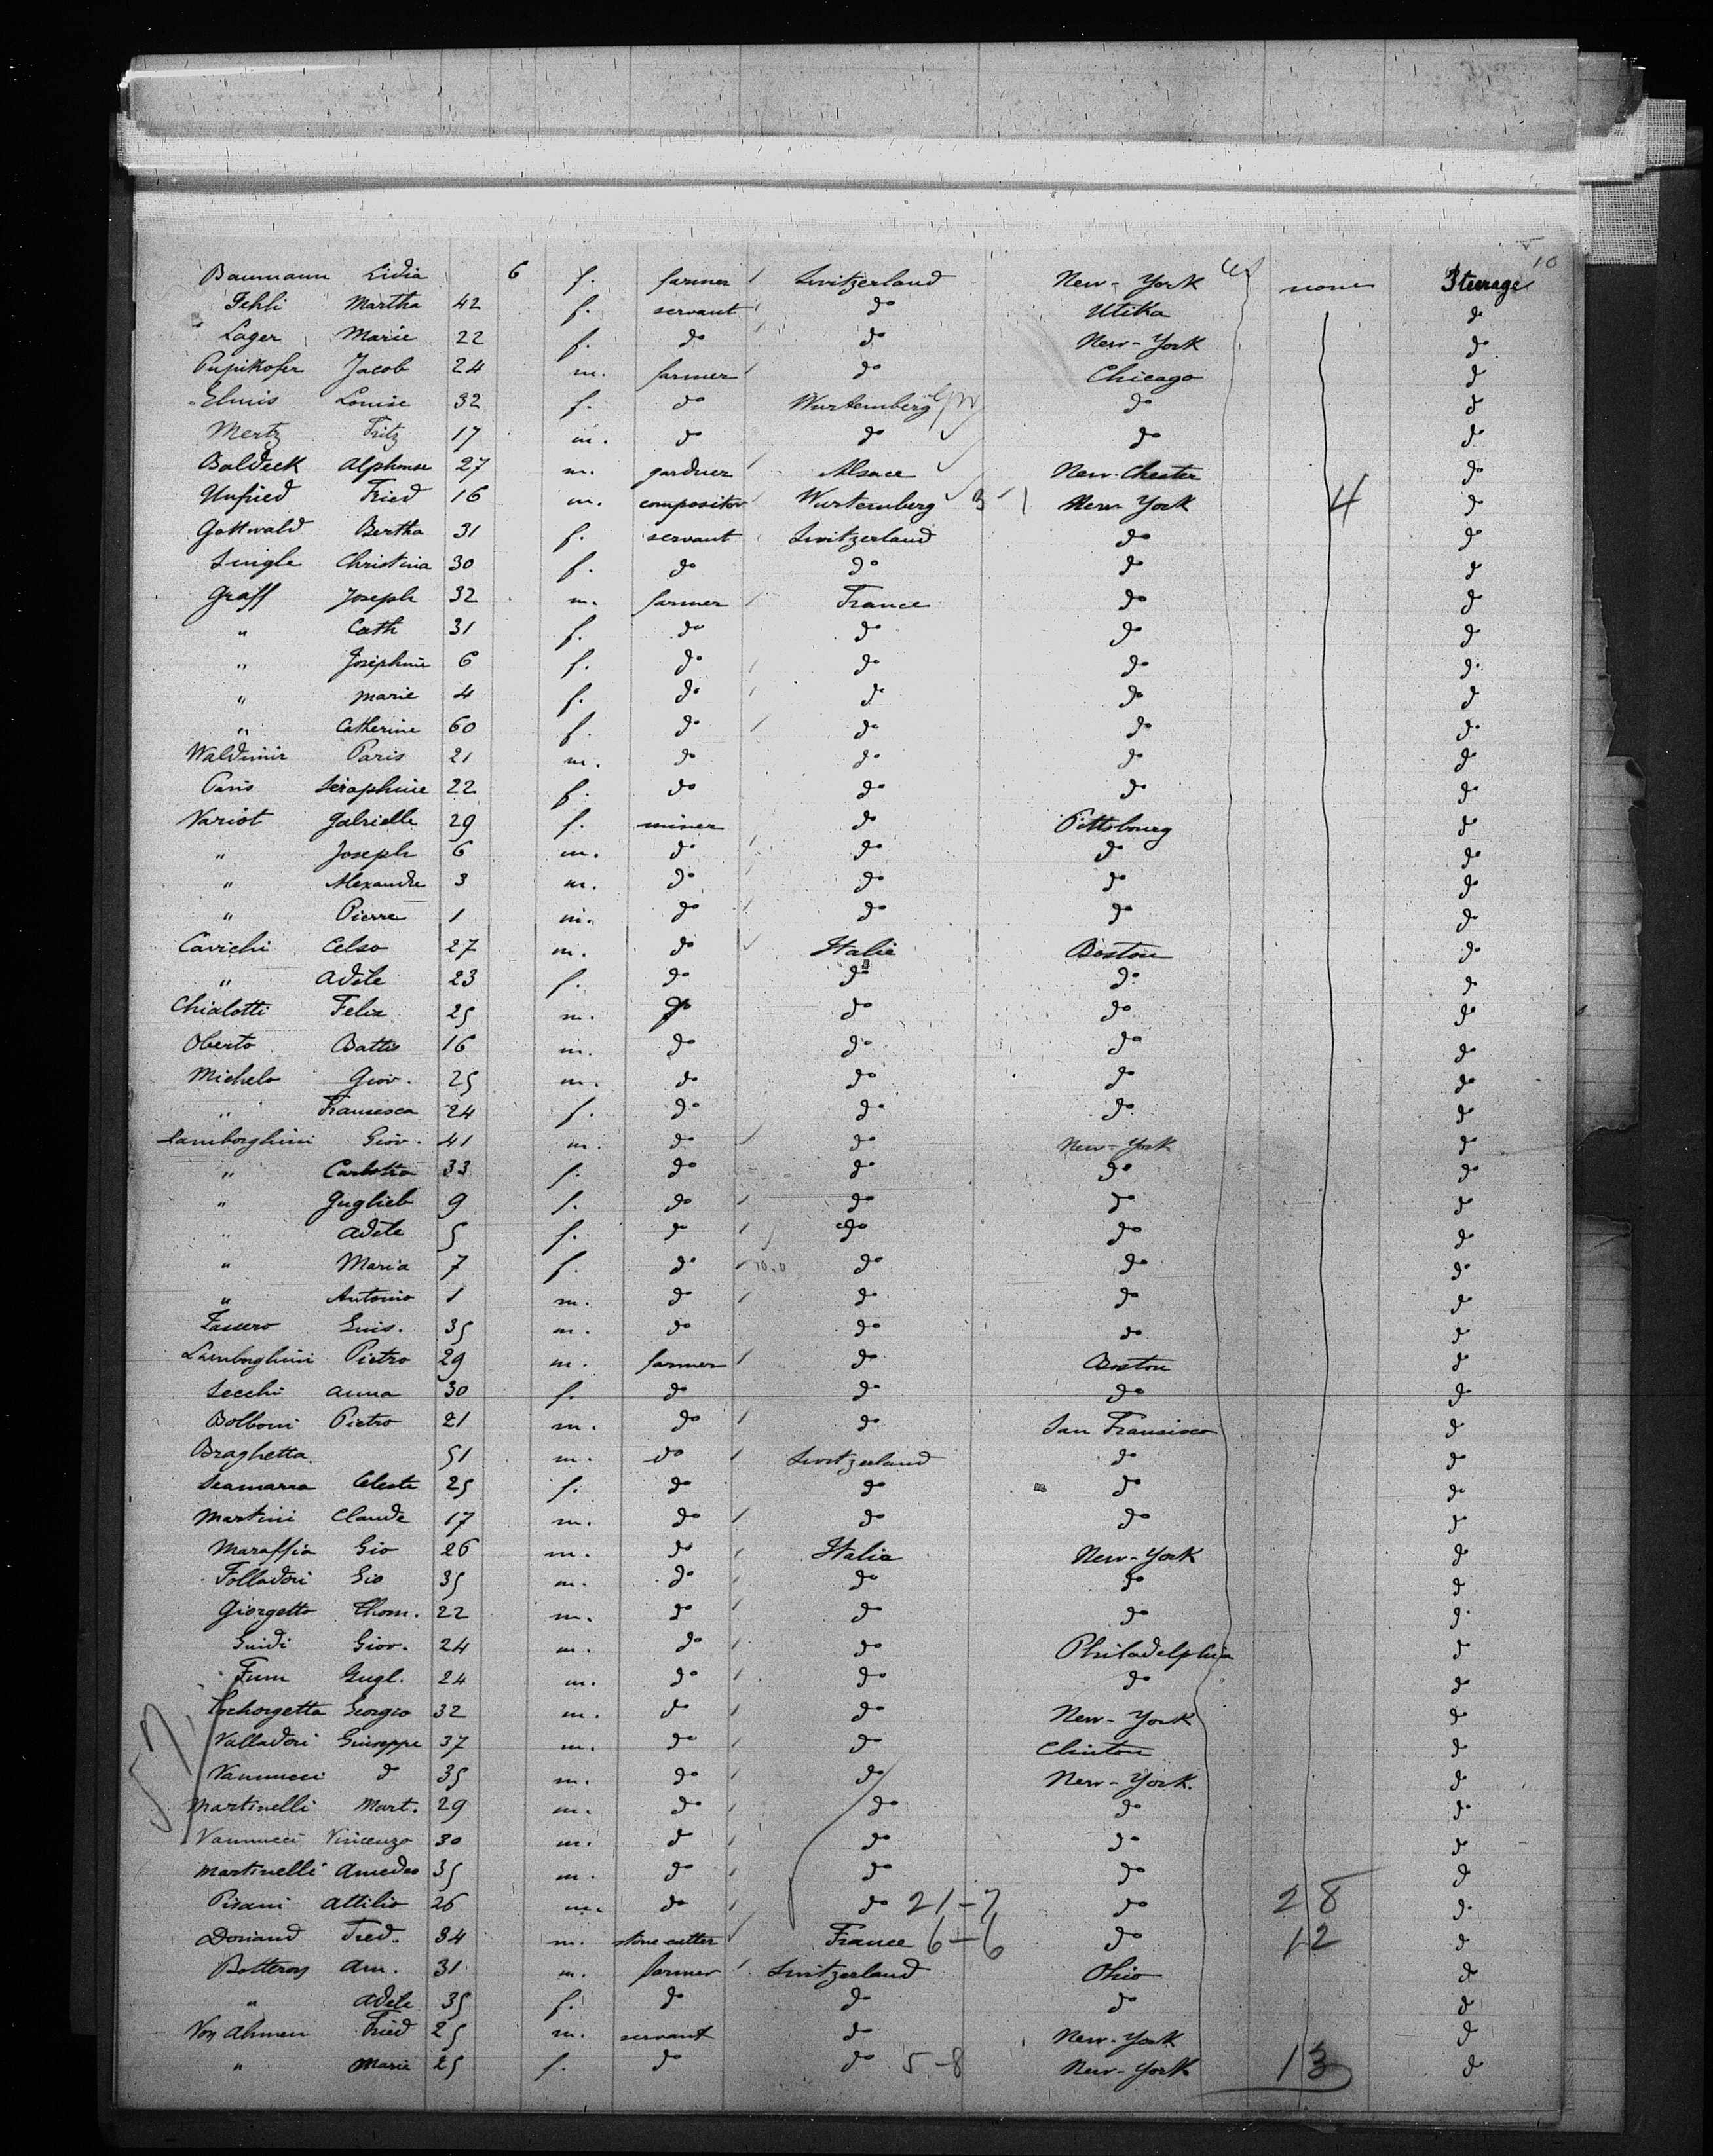 10
Baumann Lidia 6 f. farmer Switzerland New-York none Steerage
Fehli Martha 42 f. servant do Utika do
Lager Marie 22 f. do do New-York do
Pupikofer Jacob 24 m. farmer do Chicago do
Elmis Louise 32 f. do Wurtemberg do do
Mertz Fritz 17 m. do do do do
Baldeck Alphonse 27 m. gardner Alsace New-Chester do
Unfried Fried 16 m. compositor Wurtemberg 3 1 New-York 4 do
Gottwald Bertha 31 f. servant Switzerland do do
Single Christina 30 f. do do do do
Graff Joseph 32 m. farmer France do do
" Cath 31 f. do do do do
" Joséphine 6 f. do do do do
" Marie 4 f. do do do do
" Catherine 60 f. do do do do
Waldimir Paris 21 m. do do do do
Paris Séraphine 22 f. do do do do
Variot Gabrielle 29 f. miner do Pittsbourg do
" Joseph 6 m. do do do do
" Alexandre 3 m. do do do do
" Pierre 1 m. do do do do
Cavichi Celso 27 m. do Italie Boston do
" Adèle 23 f. do do do do
Chialotti Felix 25 m. do do do do
Oberto Battis 16 m. do do do do
Michelo Giov. 25 m. do do do do
" Francesca 24 f. do do do do
Lamborghini Giov. 41 m. do do New-York do
" Carlotta 33 f. do do do do
" Guglieb 9 f. do do do do
" Adèle 5 f. do do do do
" Maria 7 f. do do do do
" Antonio 1 m. do do do do
Fassero Guis. 35 m. do do do do
Lamborghini Pietro 29 m. farmer do Boston do
Secchi Anna 30 f. do do do do
Bolboni Pietro 21 m. do do San Fransisco do
Braghetta 51 m. do Switzerland do do
Seamarra Celeste 25 f. do do do do
Martini Claude 17 m. do do do do
Maraffia Gio 26 m. do Italia New-York do
Folladori Gio 35 m. do do do do
Giorgetto Thom. 22 m. do do do do
Guidi Giov. 24 m. do do Philadelphia do
Fum Gugl. 24 m. do do do do
Giorgio 32 m. do do New-York do
Valladori Giuseppe 37 m. do do Clinton do
Vannucci do 35 m. do do New-York. do
Martinelli Mart. 29 m. do do do do
Vannucci Vincenzo 30 m. do do do do
Martinelli Amedeo 35 m. do do do do
Pisani Attilio 26 m. do do 21-7 do 28 do
Doriand Fred. 34 m. stone-cutter France 6-6 do 12 do
Botteron Am. 31 m. farmer Switzerland Ohio do
" Adele 35 f. do do do do
Von Ahmen Fried 25 m. servant do New-York do
" Marie 25 f. do do 5-8 New-York 13 do